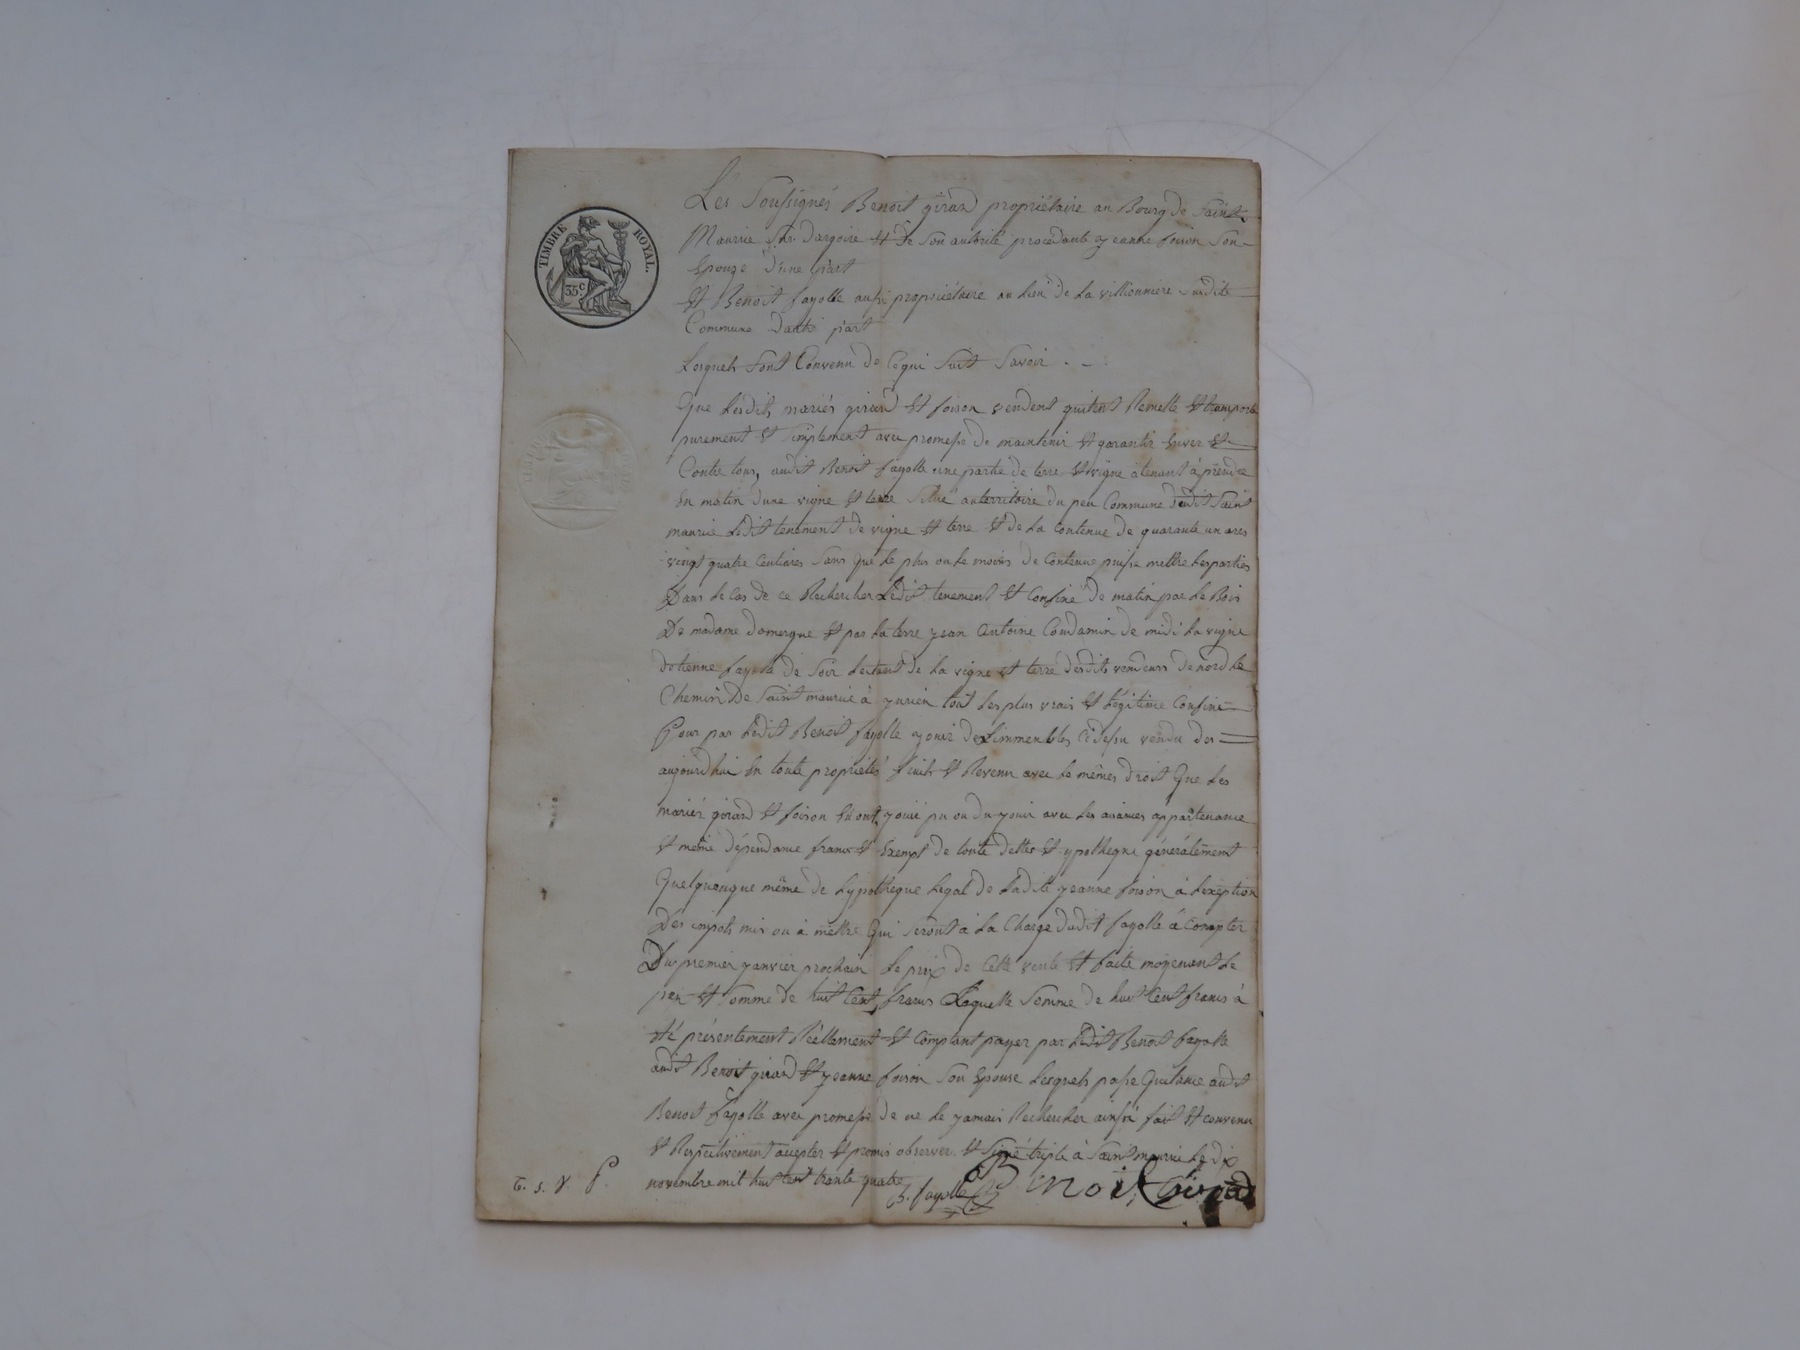 TIMBRE ROYAL.
35 c
Les Soussignés Benoit girard propriétaire au Bourg de Saint
Maurice Sur Dargoire et De Son autorité procedante yeanne foison Son
Epouze d'une part
Et Benoit fayolle auši propriétaire au Lieu de La villionniere Susdite
Commune Dautre part
Lesquels Sont Convenu De Cequi Suit Savoir
Que Lesdits mariés girard Et foison vendent quitent Remette Et transporte
purement Et Simplement avec promesse de maintenir Et garantir Enver Et
Contre tous, audit Benoit fayolle une partie de terre Et vigne atenant à prendre
En matin dune vigne Et terre Situé auterritoire du peu Commune dudit Saint
maurice Ledit tenement de vigne Et terre Et de La Contenue de quarante un ares
vingt quatre Centiares Sans Que Le plus ou Le moins de Contenue puisse mettre Lesparties
Dans Le Cas de ce Rechercher Ledit tenement Et Confiné de matin par Le Bois
De madame domergue Et par La terre yean Antoine Condamin de midi La vigne
detienne fayolle de Soir Lertant de La vigne Et terre desdits vendeurs de nord Le
Chemin De Saint maurice à yurien tout Les plus vrais Et Légitime Confins
Pour par Ledit Benoit fayolle youir deLimmeubles Cidessu vendu des
aujourdhui En toute propriétés fruits Et Revenu avec Le mêmes droit Que Les
mariés girard Et foison En ont youié pu ou du youir avec Les aisances appartenance
Et même dépendance franc Et Exempt de toute dettes Et ypotheque généralement
Quelquonque même de Lypotheque Legal de Ladite yeanne foison à Lexeption
Des impots mis ou à mettre Qui Seront à La Charge dudit fayolle à Compter
Du premier yanvier prochain Le prix de Cette vente Et faite moyenant Le
prix Et Somme de huit Cent francs Laquelle Somme de huit Cent francs à
été présentement Réellement Et Comptant payer par Ledit Benoit fayolle
audit Benoit girard Et yeanne foison Son Epouse Lesquels passe Quitance audit
Benoit fayolle avec promesse de ne Le yamais Rechercher ainsi fait Et convenu
Et Respectivement accepter Et promis observer Et Signé triple à Saint maurice Le dix
novembre mil huit cent trente quatre
B. fayolle Benoit Girard
T. S. V. P.